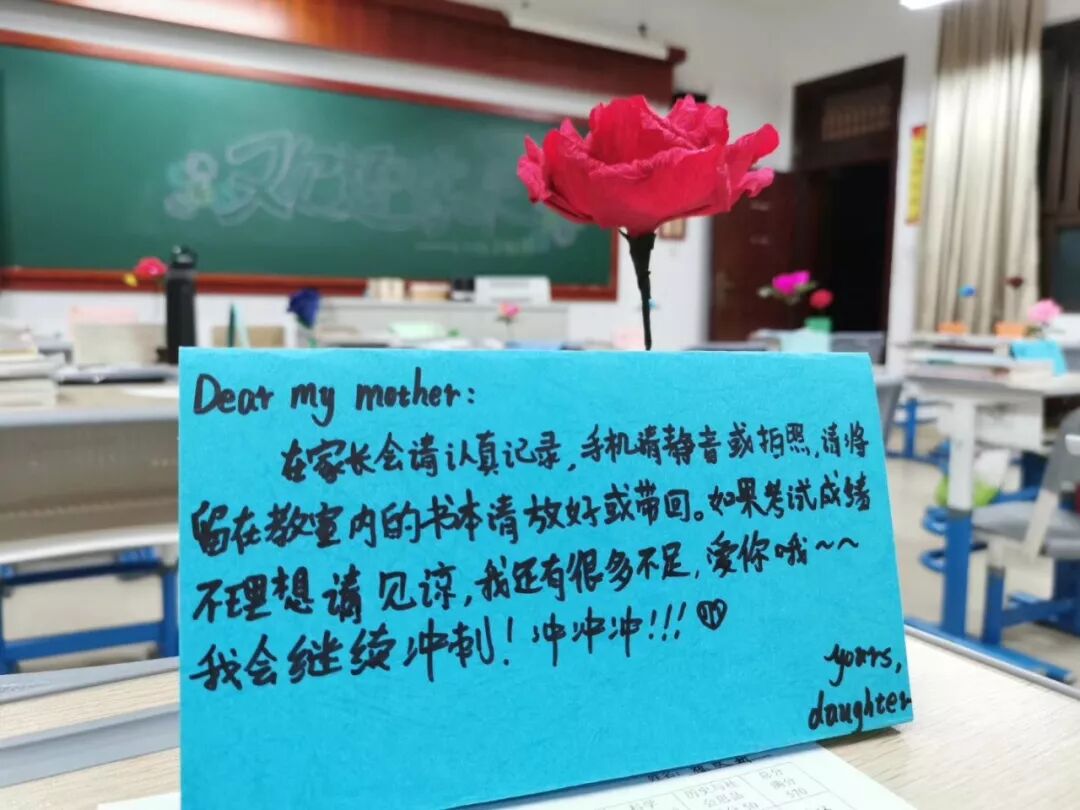 欢迎
Dear my mother:
在家长会请认真记录,手机请静音或拍照,请将
留在教室内的书本请放好或带回。如果考试成绩
不理想请见谅,我还有很多不足,爱你哦~~
我会继续冲刺!冲冲冲!!!
yours,
daughter
科学 历史与社 总分
满分